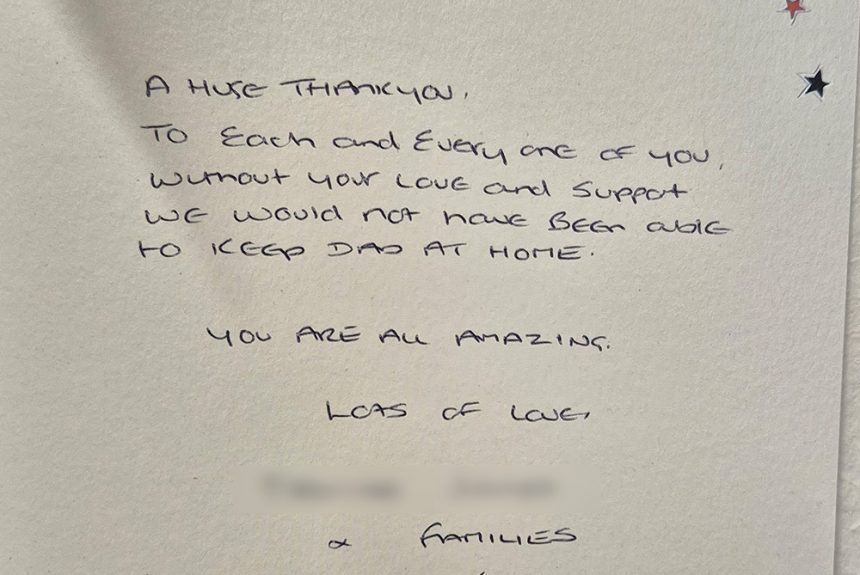 A HUGE THANKYOU,
TO Each and Every one of you,
without your love and support
WE would not have BEEN able
to KEEP DAD AT HOME.
YOU ARE ALL AMAZING.
LOTS OF LOVE,
& FAMILIES